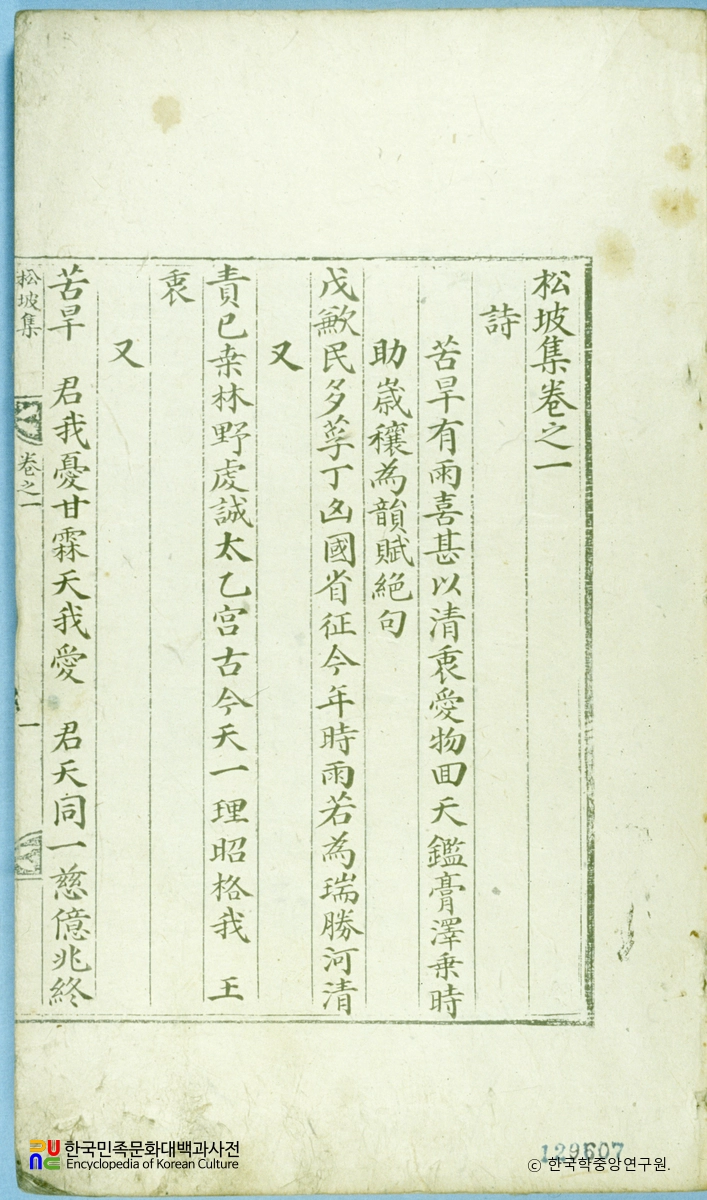 松坡集卷之一
詩
苦旱有雨喜甚以清衷愛物回天鑑膏澤乗時
助歲穰為韻賦絶句
戊歉民多莩丁凶國省征今年時雨若為瑞勝河清
又
責已桒林野虔誠太乙宮古今天一理昭格我 王
衷
又
苦旱 君我憂甘霖天我愛 君天同一慈億兆終
松坡集 卷之一 一
한국민족문화대백과사전
Encyclopedia of Korean Culture
129607
ⓒ 한국학중앙연구원.